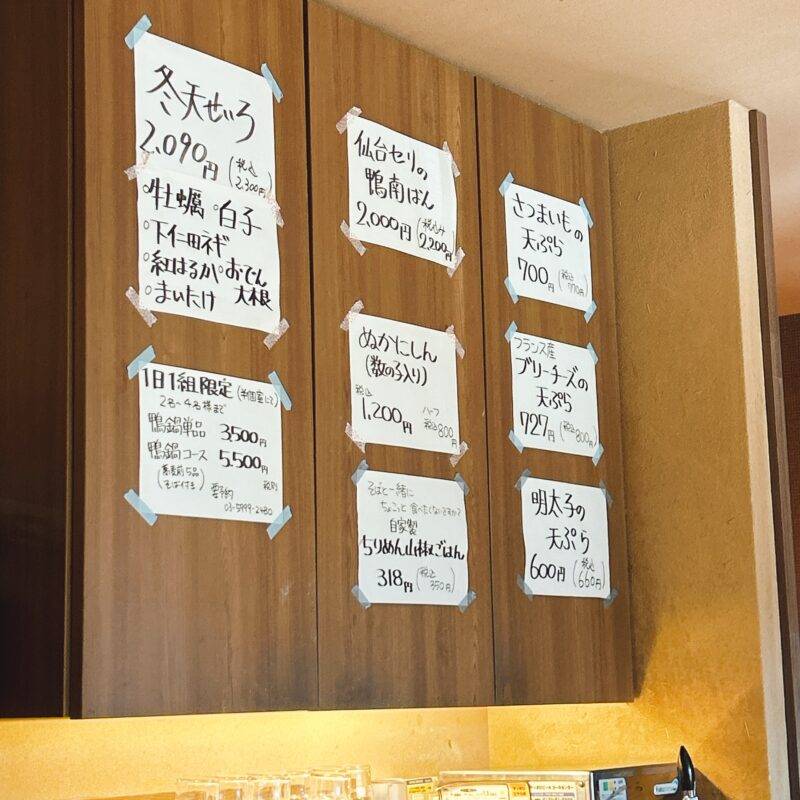 冬天せいろ
2,090円 (税込 2,300円)
・牡蠣 ・白子
・下仁田ネギ
・紅はるか ・おでん大根
・まいたけ
1日1組限定 (半個室にて)
2名〜4名様まで
鴨鍋単品 3,500円
鴨鍋コース 5,500円
(蕎麦前5品 そば付き) 要予約 税別
03-5999-2480
仙台セリの
鴨南ばん
2,000円 (税込み 2,200円)
ぬかにしん
(数の子入り)
税込 1,200円 ハーフ 税込800円
そばと一緒に
ちょこっと食べたくないですか?
自家製
ちりめん山椒ごはん
318円 (税込 350円)
さつまいもの
天ぷら
700円 (税込 770円)
フランス産
ブリーチーズの
天ぷら
727円 (税込 800円)
明太子の
天ぷら
600円 (税込 660円)